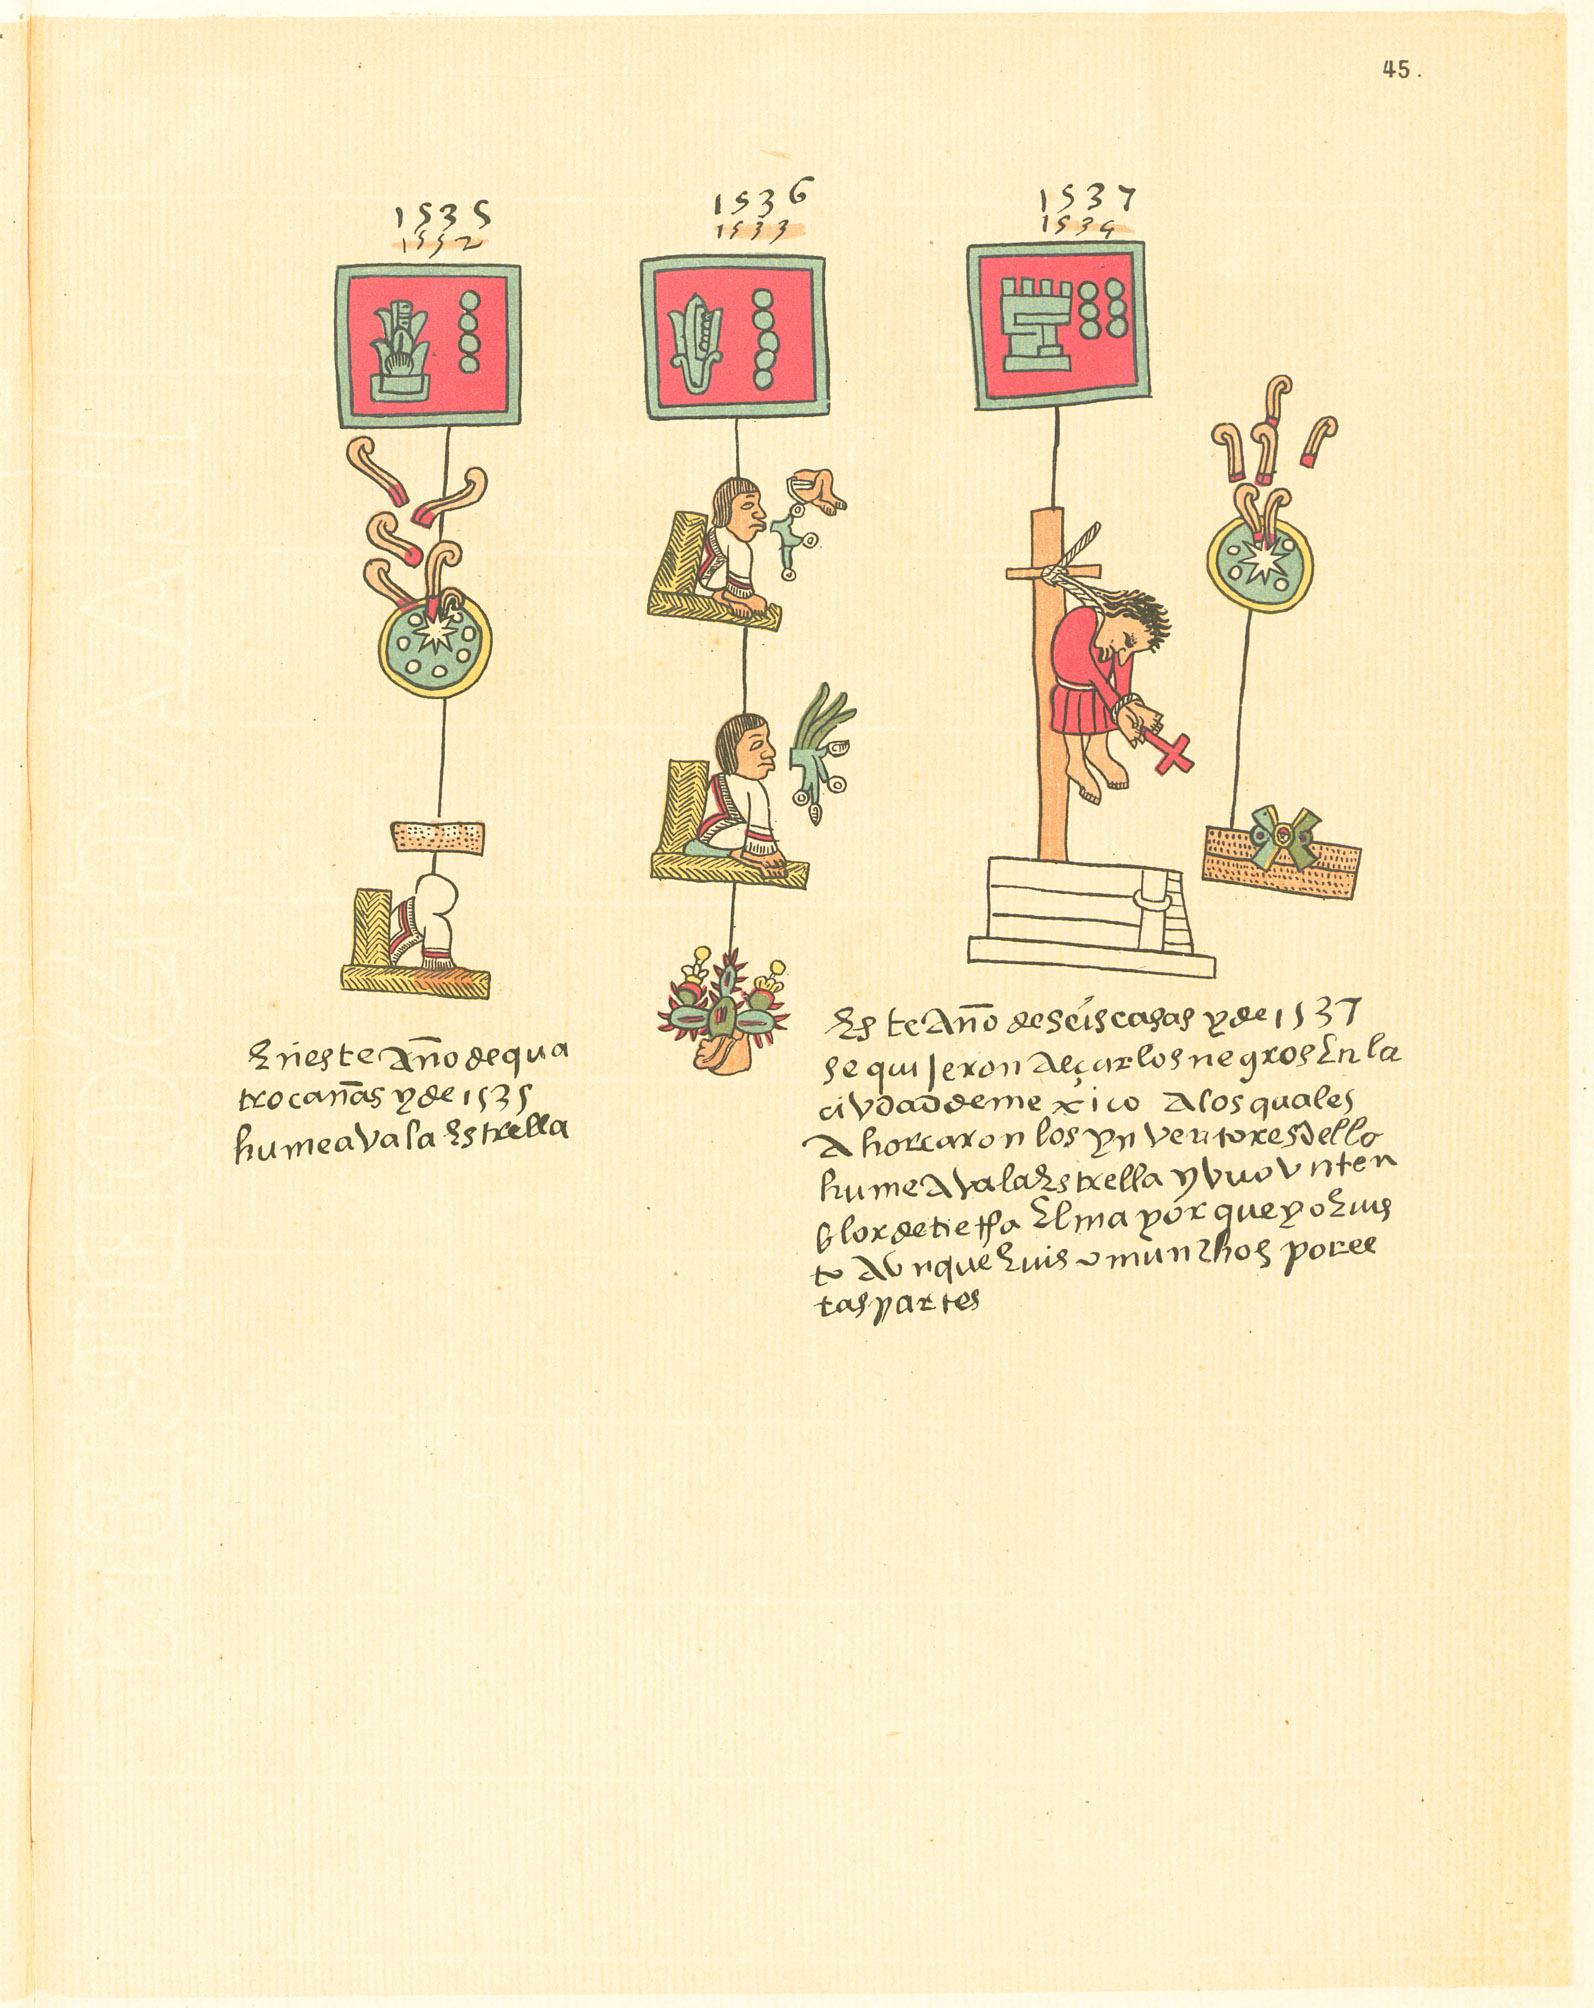 45.
1535
1552
1536
1533
1537
1534
Eneste Año dequa
trocañas yde 1535
humeavala Estrella
Este Año deseiscasas yde 1537
sequisieron Alçarlosnegros Enla
civdaddemexico Alosquales
Ahorcaron los ynventoresdello
humeAvalaEstrella yvuo vnten
blordetierra Elmayor queyoEvis
to AvnqueEvisto munchos porees
taspartes